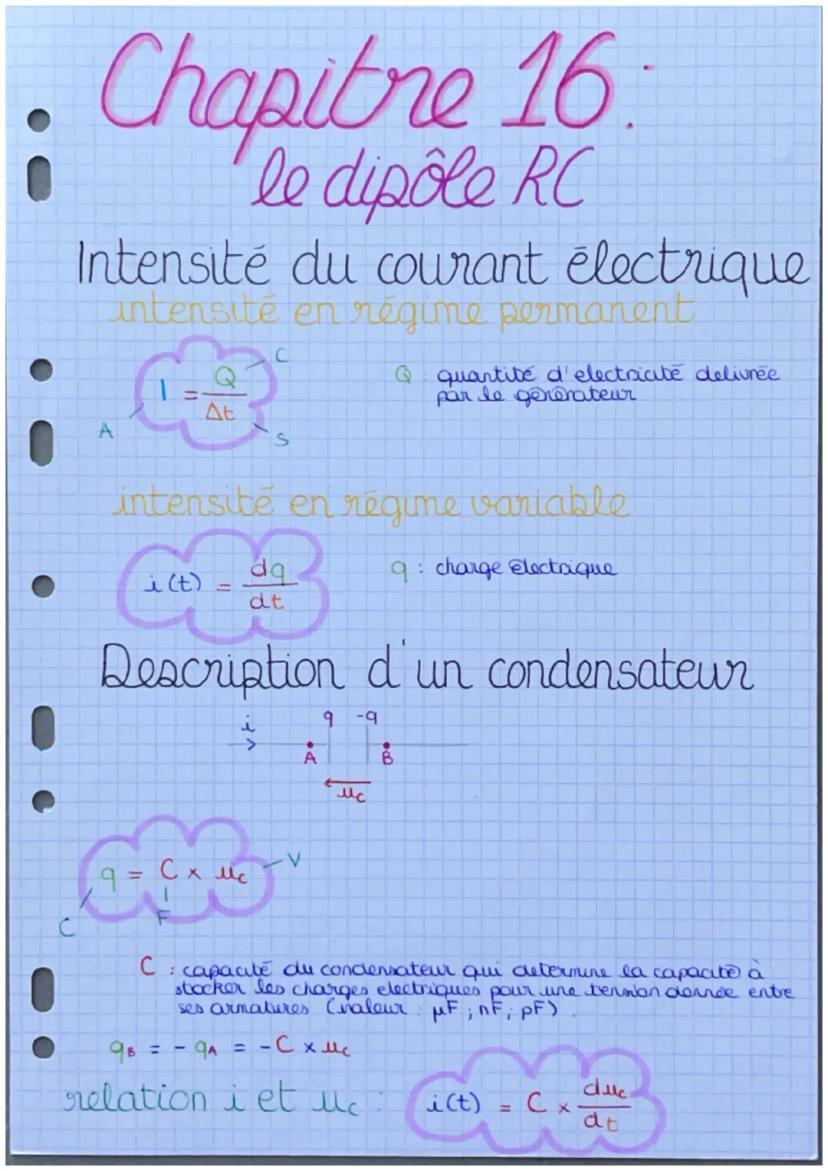 Chapitre 16:
le dipôle RC
Intensité du courant électrique
intensité en régime permanent
I = Q/Δt
C
A
s
Q : quantité d'electricité delivrée
par le générateur
intensité en régime variable
i(t) = dq/dt
q : charge électrique
Description d'un condensateur
i
q -q
A B
uc
q = C x uc
V
C
F
C : capacité du condensateur qui determine la capacité à
stocker les charges electriques pour une tension donnée entre
ses armatures (valeur : µF ; nF ; pF)
qB = - qA = -C x uc
relation i et uc : i(t) = C x duc/dt